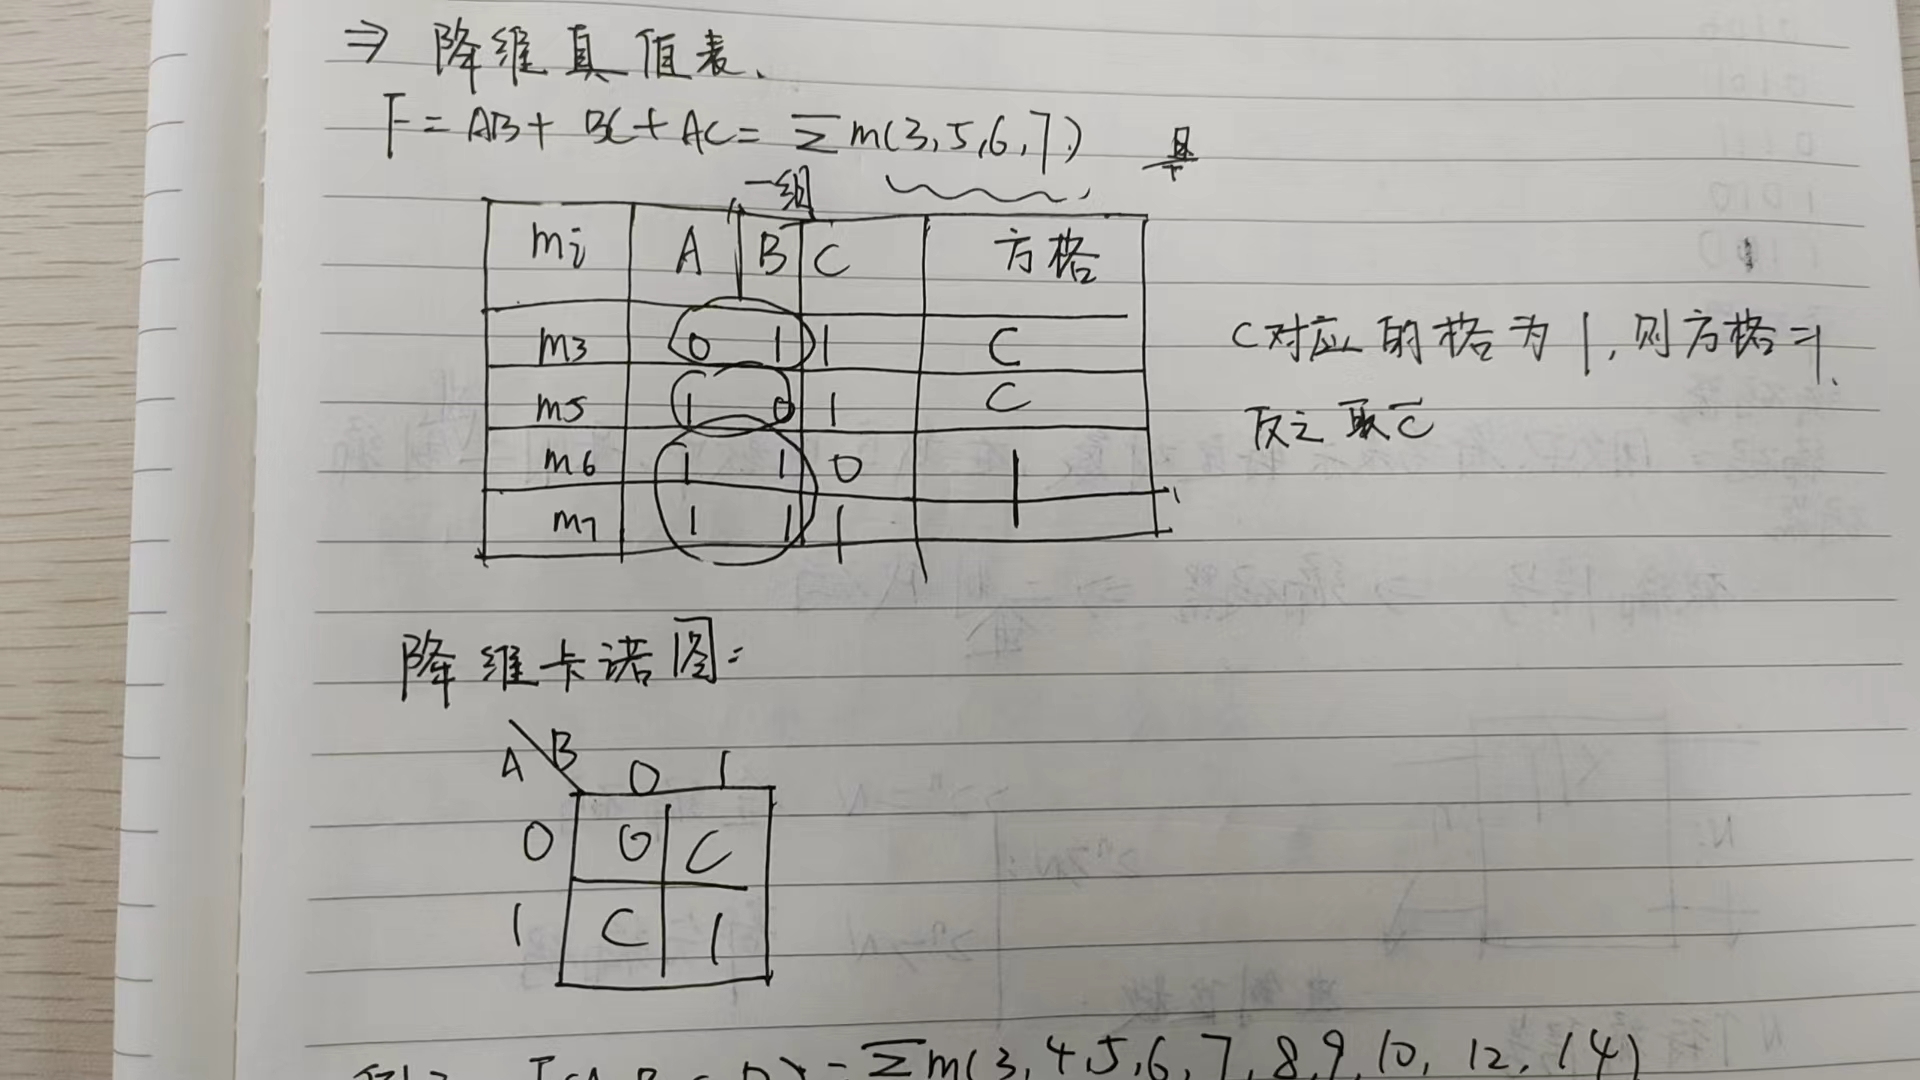 ⇒ 降维真值表、
F = AB + BC + AC = Σm(3,5,6,7)
一组
mi A B C 方格
m3 0 1 1 C
m5 1 0 1 C
m6 1 1 0 1
m7 1 1 1 1
C对应的格为1,则方格=1、
反之取C̅
降维卡诺图:
A\B 0 1
0 0 C
1 C 1
Σm(3,4,5,6,7,8,9,10,12,14)